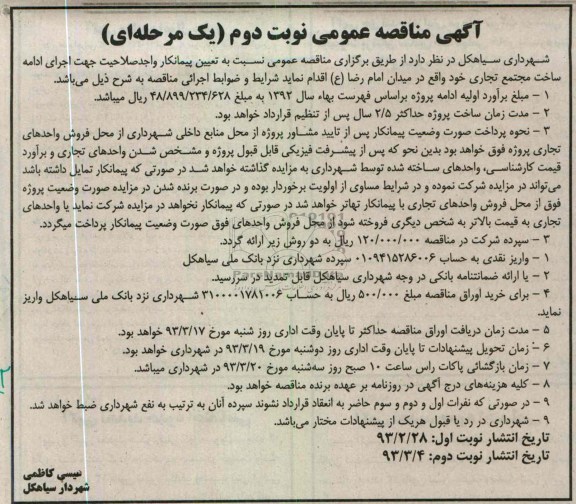 آگهی مناقصه عمومی نوبت دوم (یک مرحله‌ای)
شهرداری سیاهکل در نظر دارد از طریق برگزاری مناقصه عمومی نسبت به تعیین پیمانکار واجدصلاحیت جهت اجرای ادامه
ساخت مجتمع تجاری خود واقع در میدان امام رضا (ع) اقدام نماید شرایط و ضوابط اجرائی مناقصه به شرح ذیل می‌باشد.
۱ – مبلغ برآورد اولیه ادامه پروژه براساس فهرست بهاء سال ۱۳۹۲ به مبلغ ۴۸/۸۹۹/۲۳۴/۶۲۸ ریال میباشد.
۲ – مدت زمان ساخت پروژه حداکثر ۲/۵ سال پس از تنظیم قرارداد خواهد بود.
۳ – نحوه پرداخت صورت وضعیت پیمانکار پس از تایید مشاور پروژه از محل منابع داخلی شهرداری از محل فروش واحدهای
تجاری پروژه فوق خواهد بود بدین نحو که پس از پیشرفت فیزیکی قابل قبول پروژه و مشخص شدن واحدهای تجاری و برآورد
قیمت کارشناسی، واحدهای ساخته شده توسط شهرداری به مزایده گذاشته خواهد شد در صورتی که پیمانکار تمایل داشته باشد
می‌تواند در مزایده شرکت نموده و در شرایط مساوی از اولویت برخوردار بوده و در صورت برنده شدن در مزایده صورت وضعیت پروژه
فوق از محل فروش واحدهای تجاری با پیمانکار تهاتر خواهد شد در صورتی که پیمانکار نخواهد در مزایده شرکت نماید یا واحدهای
تجاری به قیمت بالاتر به شخص دیگری فروخته شود از محل فروش واحدهای فوق صورت وضعیت پیمانکار پرداخت میگردد.
۳ – سپرده شرکت در مناقصه ۱۲۰/۰۰۰/۰۰۰ ریال به دو روش زیر ارائه گردد.
۱ – واریز نقدی به حساب ۰۱۰۹۴۱۵۲۸۶۰۰۶ سپرده شهرداری نزد بانک ملی سیاهکل
۲ – یا ارائه ضمانتنامه بانکی در وجه شهرداری سیاهکل قابل تمدید در سررسید.
۴ – برای خرید اوراق مناقصه مبلغ ۵۰۰/۰۰۰ ریال به حساب ۳۱۰۰۰۰۱۷۸۱۰۰۶ شهرداری نزد بانک ملی سیاهکل واریز
نماید.
۵ – مدت زمان دریافت اوراق مناقصه حداکثر تا پایان وقت اداری روز شنبه مورخ ۹۳/۳/۱۷ خواهد بود.
۶ – زمان تحویل پیشنهادات تا پایان وقت اداری روز دوشنبه مورخ ۹۳/۳/۱۹ در شهرداری خواهد بود.
۷ – زمان بازگشائی پاکات راس ساعت ۱۰ صبح روز سه‌شنبه مورخ ۹۳/۳/۲۰ در شهرداری میباشد.
۸ – کلیه هزینه‌های درج آگهی در روزنامه بر عهده برنده مناقصه خواهد بود.
۹ – در صورتی که نفرات اول و دوم و سوم حاضر به انعقاد قرارداد نشوند سپرده آنان به ترتیب به نفع شهرداری ضبط خواهد شد.
۹ – شهرداری در رد یا قبول هریک از پیشنهادات مختار می‌باشد.
تاریخ انتشار نوبت اول: ۹۳/۲/۲۸
تاریخ انتشار نوبت دوم: ۹۳/۳/۴
عیسی کاظمی
شهردار سیاهکل